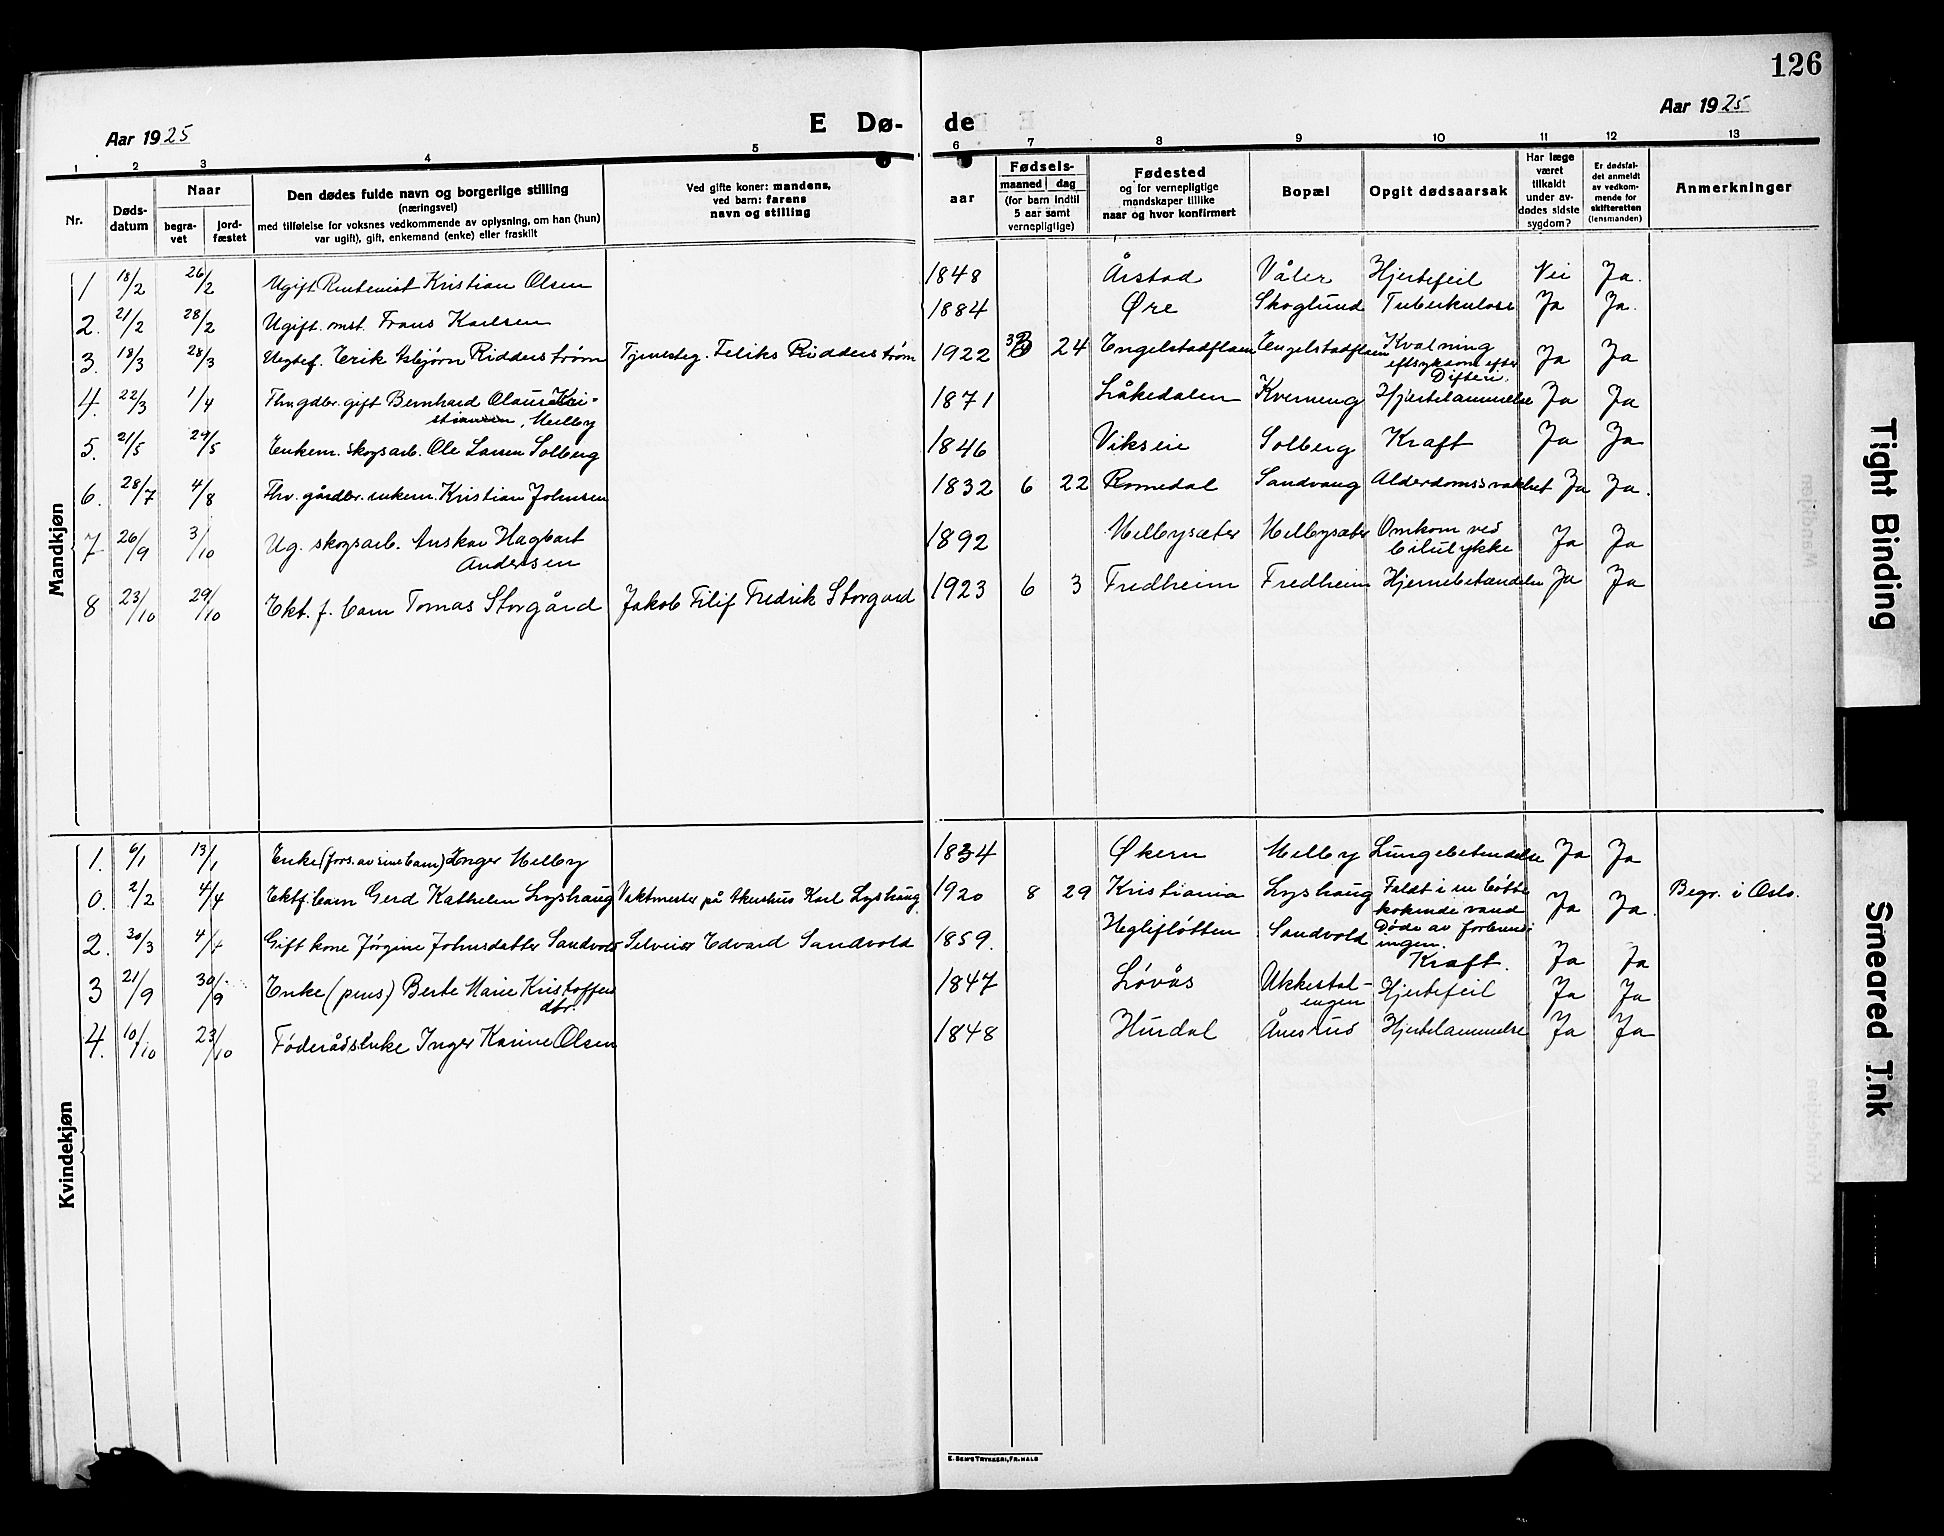 126
Aar 1925
E Dø-
de
Aar 1925
1 2 3 4 5 6 7 8 9 10 11 12 13
Nr.
Døds-
datum
Naar
begra-
vet
jord-
fæstet
Den dødes fulde navn og borgerlige stilling
(næringsvei)
med tilføielse for voksnes vedkommende av oplysning, om han (hun)
var ugift, gift, enkemand (enke) eller fraskilt
Ved gifte koner: mandens,
ved barn: farens
navn og stilling
aar
Fødsels-
maaned dag
(for barn indtil
5 aar samt
vernepligtige)
Fødested
og for vernepligtige
mandskaper tillike
naar og hvor konfirmert
Bopæl
Opgit dødsaarsak
Har læge
været
tilkaldt
under av-
dødes sidste
sygdom?
Er dødsfal-
det anmeldt
av vedkom-
mende for
skifteretten
(lensmanden)
Anmerkninger
Mandkjøn
1 18/2 26/2 Ugift Rentenist Kristian Olsen 1848 Årstad Våler Hjertefeil Nei Ja.
2. 21/2 28/2 Ugift. mst. Frans Karlsen 1884 Øre Skoglund Tuberkulose Ja Ja.
3. 18/3 28/3 Uegtef. Erik Asbjørn Ridderstrøm Tjenesteg. Feliks Ridderstrøm 1922 24 Engelstadflaen Engelstadflaen Kvælning
eftsykdom efter
Difteri. Ja Ja
4. 22/3 1/4 Fhv. gdbr. gift Bernhard Olaus Kri-
stiansen, Melby 1871 Låkedalen Kverneng Hjertelammelse Ja Ja
5. 21/5 29/5 Enkem. skogsarb. Ole Larsen Solberg 1846 Vikseie Solberg Kræft Ja Ja
6. 28/7 4/8 Fhv. gårdbr. enkem. Kristian Johnsen 1832 6 22 Romedal Sandvang Alderdomssvakhet Ja Ja.
7 26/9 3/10 Ug. skogsarb. Anskar Hagbart
Andersen 1892 Melbysæter Melbysæter Omkom ved
bilulykke Ja Ja
8 23/10 29/10 Ekt. f. barn Tomas Storgård Jakob Filif Fredrik Storgard 1923 6 3 Fredheim Fredheim Hjernebetændelse Ja Ja
Kvindekjøn
1. 6/1 13/1 Enke (fors. av sine barn) Inger Melby 1834 Økern Melby Lungebetendelse Ja Ja
0. 2/2 4/4 Ektf. barn Gerd Kathelen Lyshaug Vaktmester på Akershus Karl Lyshaug 1920 8 29 Kristiania Lyshaug Faldt i en bøtte
kokende vand
Døde av forbrend-
ingen. Ja Ja. Begr. i Oslo.
2. 30/3 4/4 Gift kone Jørgine Johnsdatter Sandvold Selveier Edvard Sandvold 1859. Hegliflotten Sandvold Kræft. Ja Ja
3 21/9 30/9 Enke (pens) Berte Marie Kristoffers
dtr. 1847 Løvås Ukkestal-
engen Hjertefeil Ja Ja
4. 10/10 23/10 Føderådsenke Inger Karine Olsen 1848 Hurdal Årnesrud Hjertelammelse Ja Ja
E. SEM'S TRYKKERI, FR.HALD
Tight Binding
Smeared Ink